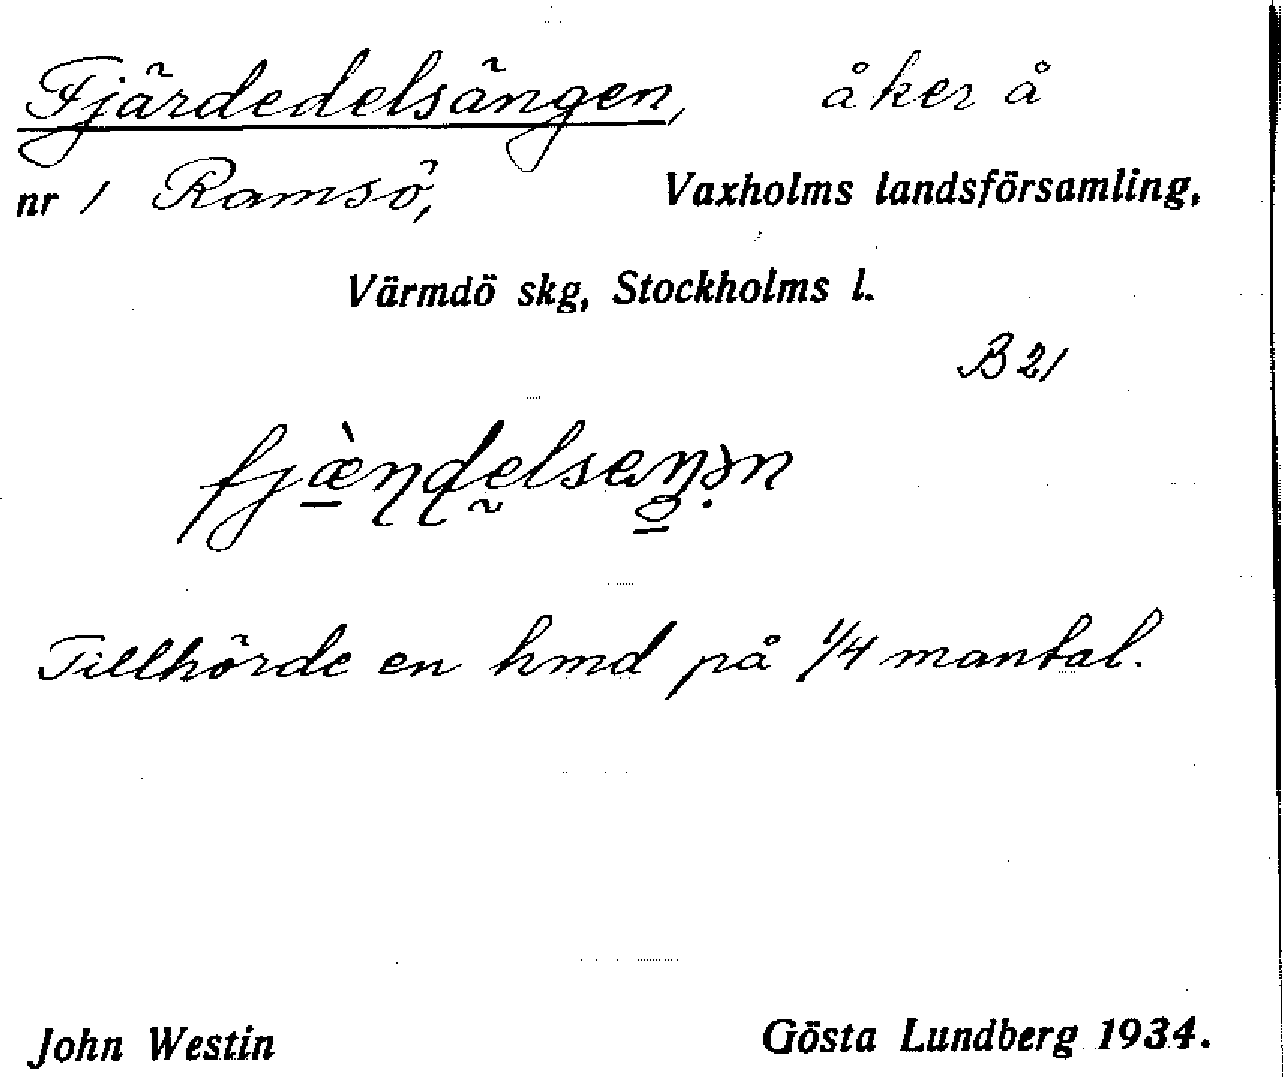 Fjärdedelsängen, åker å
nr 1 Ramsö, Vaxholms landsförsamling,
Värmdö skg, Stockholms l.
B 21
Tillhörde en hmd på 1/4 mantal.
John Westin Gösta Lundberg 1934.